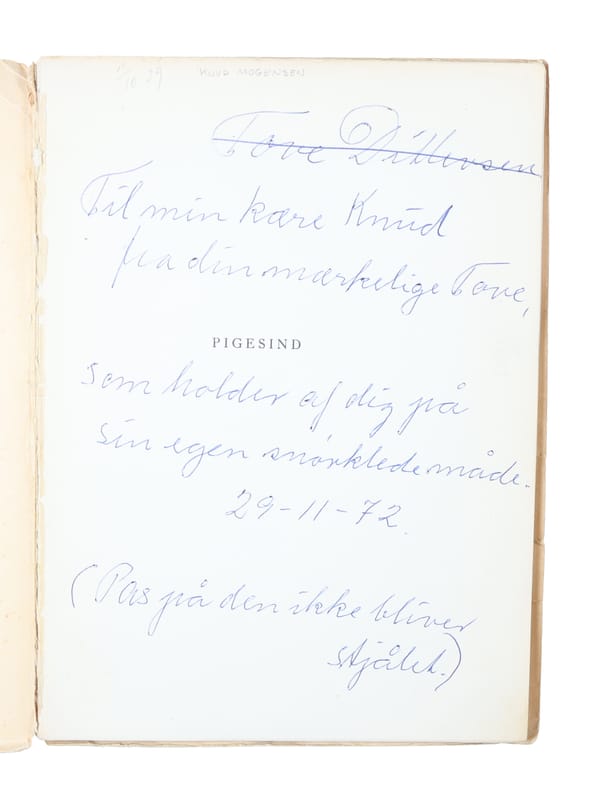 KNUD MOGENSEN
Tove Ditlevsen
Til min kære Knud
fra din mærkelige Tove,
PIGESIND
som holder af dig på
sin egen snørklede måde.
29-11-72.
(Pas på den ikke bliver
stjålet.)